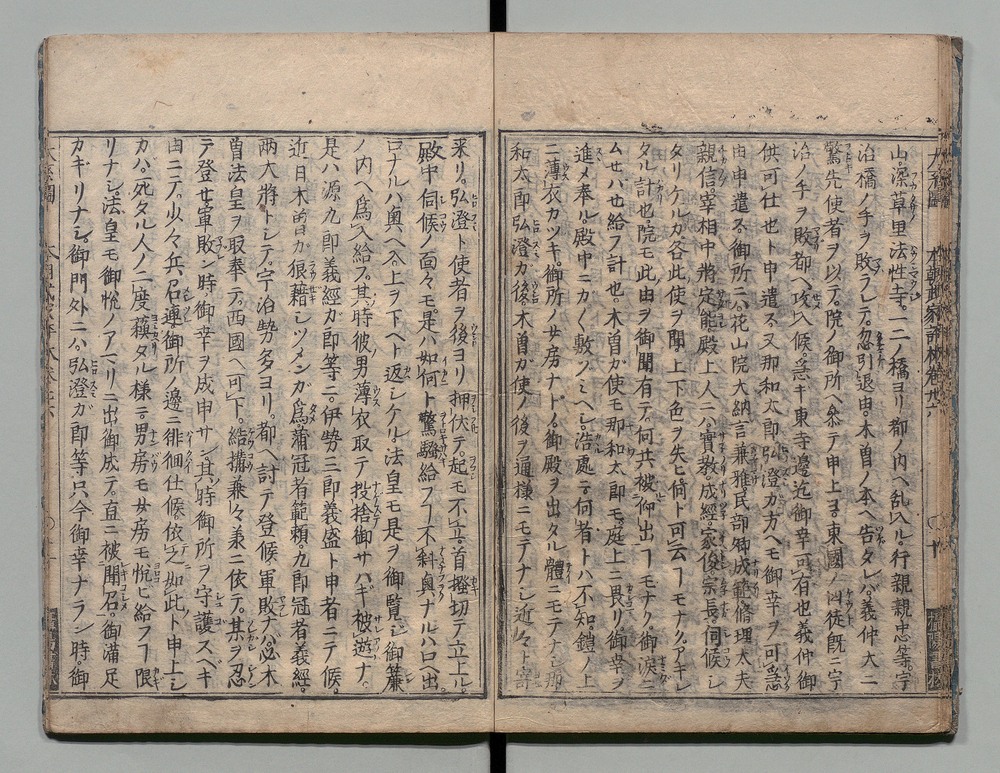 山。深草里法性寺。一二ノ橋ヨリ都ノ内ヘ乱入ル。行親親忠等。宇
治ノ橋ノ手ヲ敗ラレテ。忍引退由。木曽ノ本ヘ告タレバ。義仲大ニ
驚。先使者ヲ以テ。院ノ御所ヘ参テ申上ヨ。東國ノ凶徒既ニ宇
治ノ手ヲ敗。都ヘ攻入候。急キ東寺ノ邊迄御幸可有也。義仲御
供可仕也ト申遣ス。又那和太郎弘澄カ方ヘモ御幸ヲ可急
由申遣ス。御所ニハ。花山院大納言兼雅。民部卿成範。修理太夫
親信。宰相中将定能。殿上人ニハ。實教。成經。家俊。宗長。伺候シ
タリケルカ。各此使ヲ聞。上下色ヲ失ヒ。何ト可云フモナク。アキレ
タル計也。院モ此由ヲ御聞有テ。何共被仰出フモナク。御涙ニ
ムセバセ給フ計也。木曽ガ使モ那和太郎モ。庭上ニ畏リ御幸ヲ
進メ奉ル。殿中ニカク敷フミヘシ。浩處ニ。何者トハ不知。鎧ノ上
ニ薄衣カツキ。御所ノ女房ナトノ。御殿ヲ出タル體ニモテナシ。那
和太郎弘澄カ後。木曽ガ使ノ後ヲ通様ニモテナシ。近々ト寄
来リ。弘澄ト使者ヲ後ヨリ押伏テ。起モ不立。首掻切テ立上ル。
殿中伺候ノ面々モ。是ハ如何ト驚騒給フ。不科奥ナルハ口ヘ出。
口ナルハ奥ヘ入。上ヲ下ヘト返シケル。法皇モ是ヲ御覧シ。御簾
ノ内ヘ為入給フ。其時彼男薄衣取テ投捨。御サハギ被遊ナ。
是ハ源九郎義經ガ郎等ニ。伊勢三郎義盛ト申者ニテ候。
近日木曽カ狼藉シツメンガ為。蒲冠者範頼。九郎冠者義經。
両大将トシテ。宇治勢多ヨリ。都ヘ討テ登候。軍敗ナハ。必木
曽法皇ヲ取奉テ。西國ヘ可下。結搆兼々承ニ依テ。某ヲ忍
テ登セ。軍敗ン時御幸ヲ成申サン。其時御所ヲ守護スベキ
由ニテ。少々兵ヲ召連。御所ノ邊ニ徘徊仕候。依之如此ト申上シ
カバ。死タル人ノ二度蘓タル様ニ。男房モ女房モ悦ヒ給フフ限
リナシ。法皇モ御悦ノアマリニ出御成テ。直ニ被聞召。御満足
カギリナシ。御門外ニハ。弘澄ガ郎等只今御幸ナラン時。御